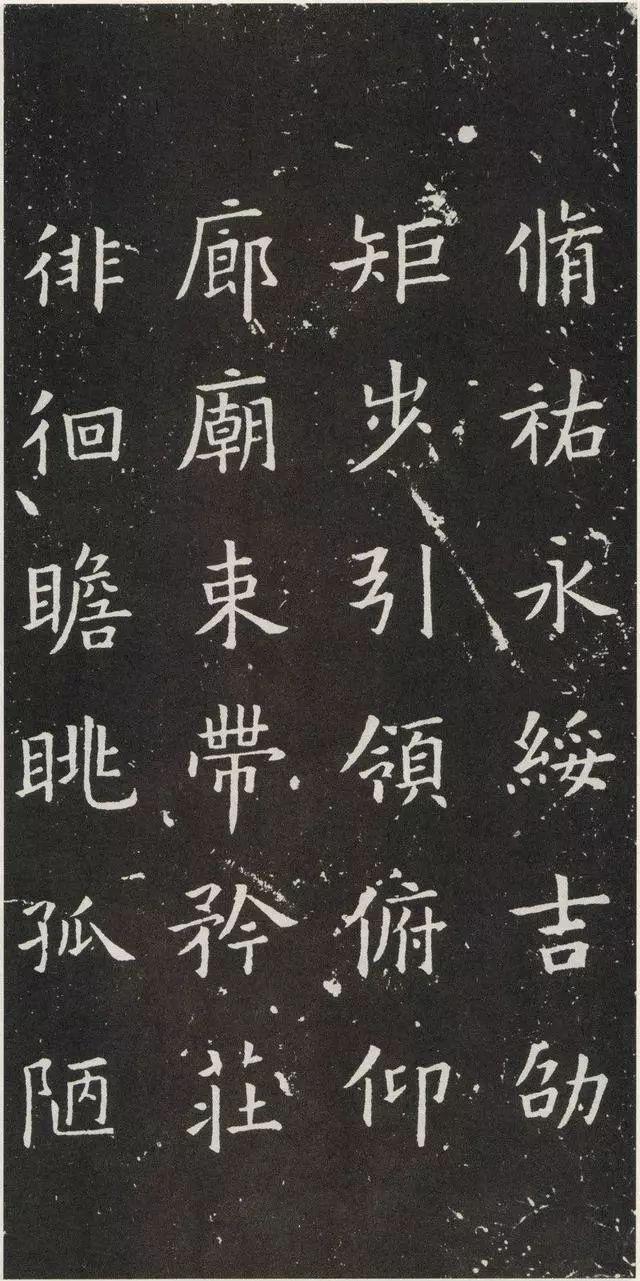 脩祐永綏吉劭
矩步引領俯仰
廊廟束帶矜莊
徘徊瞻眺孤陋